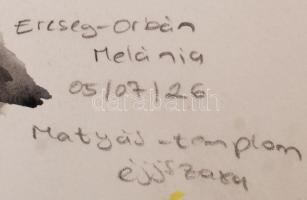 Ercseg-Orbán
Melánia
05/07/26
Matyás-templom
éjjszaka